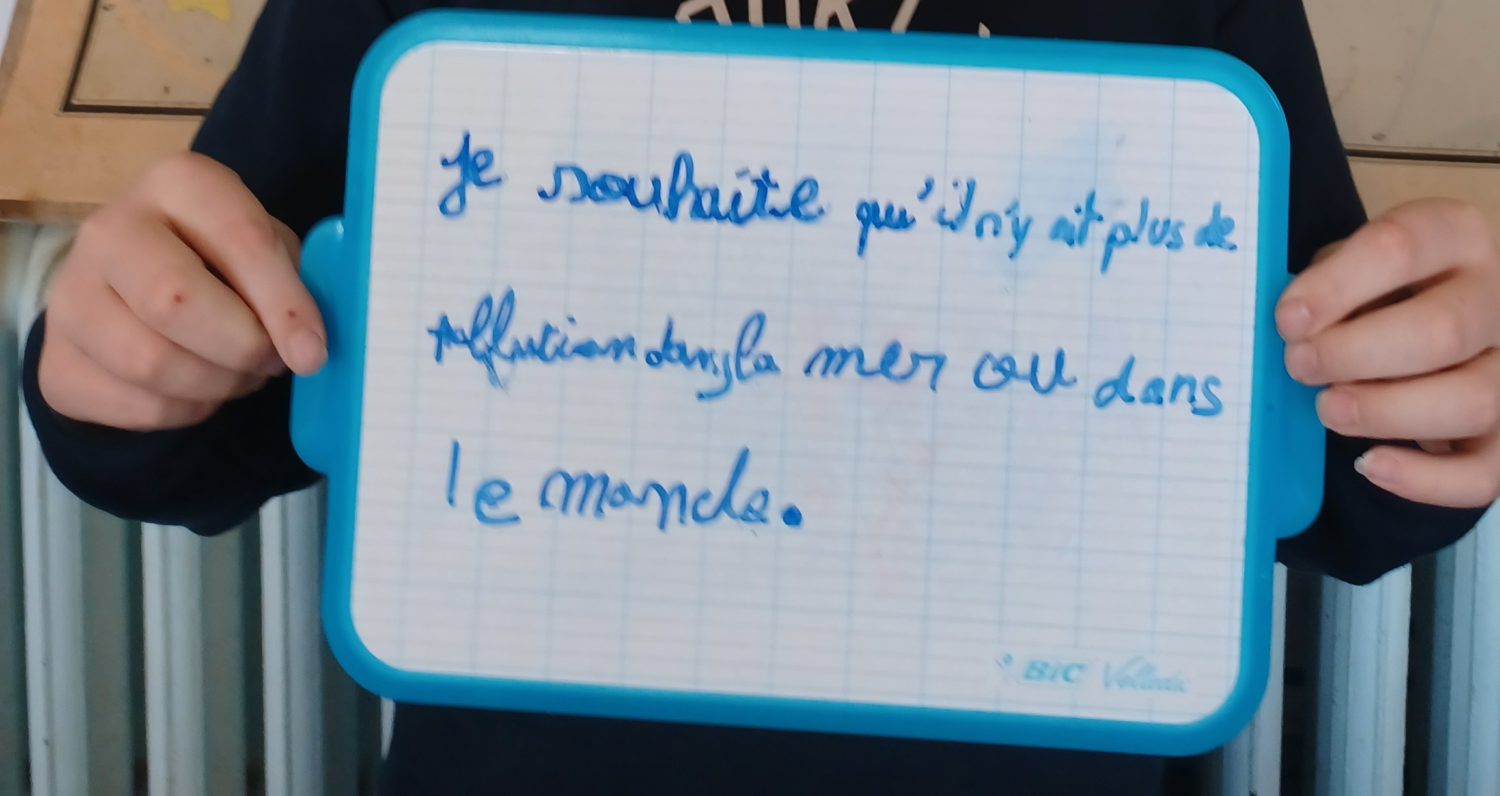 Je souhaite qu'il n'y ait plus de
pollution dans la mer ou dans
le monde.
BIC Velleda